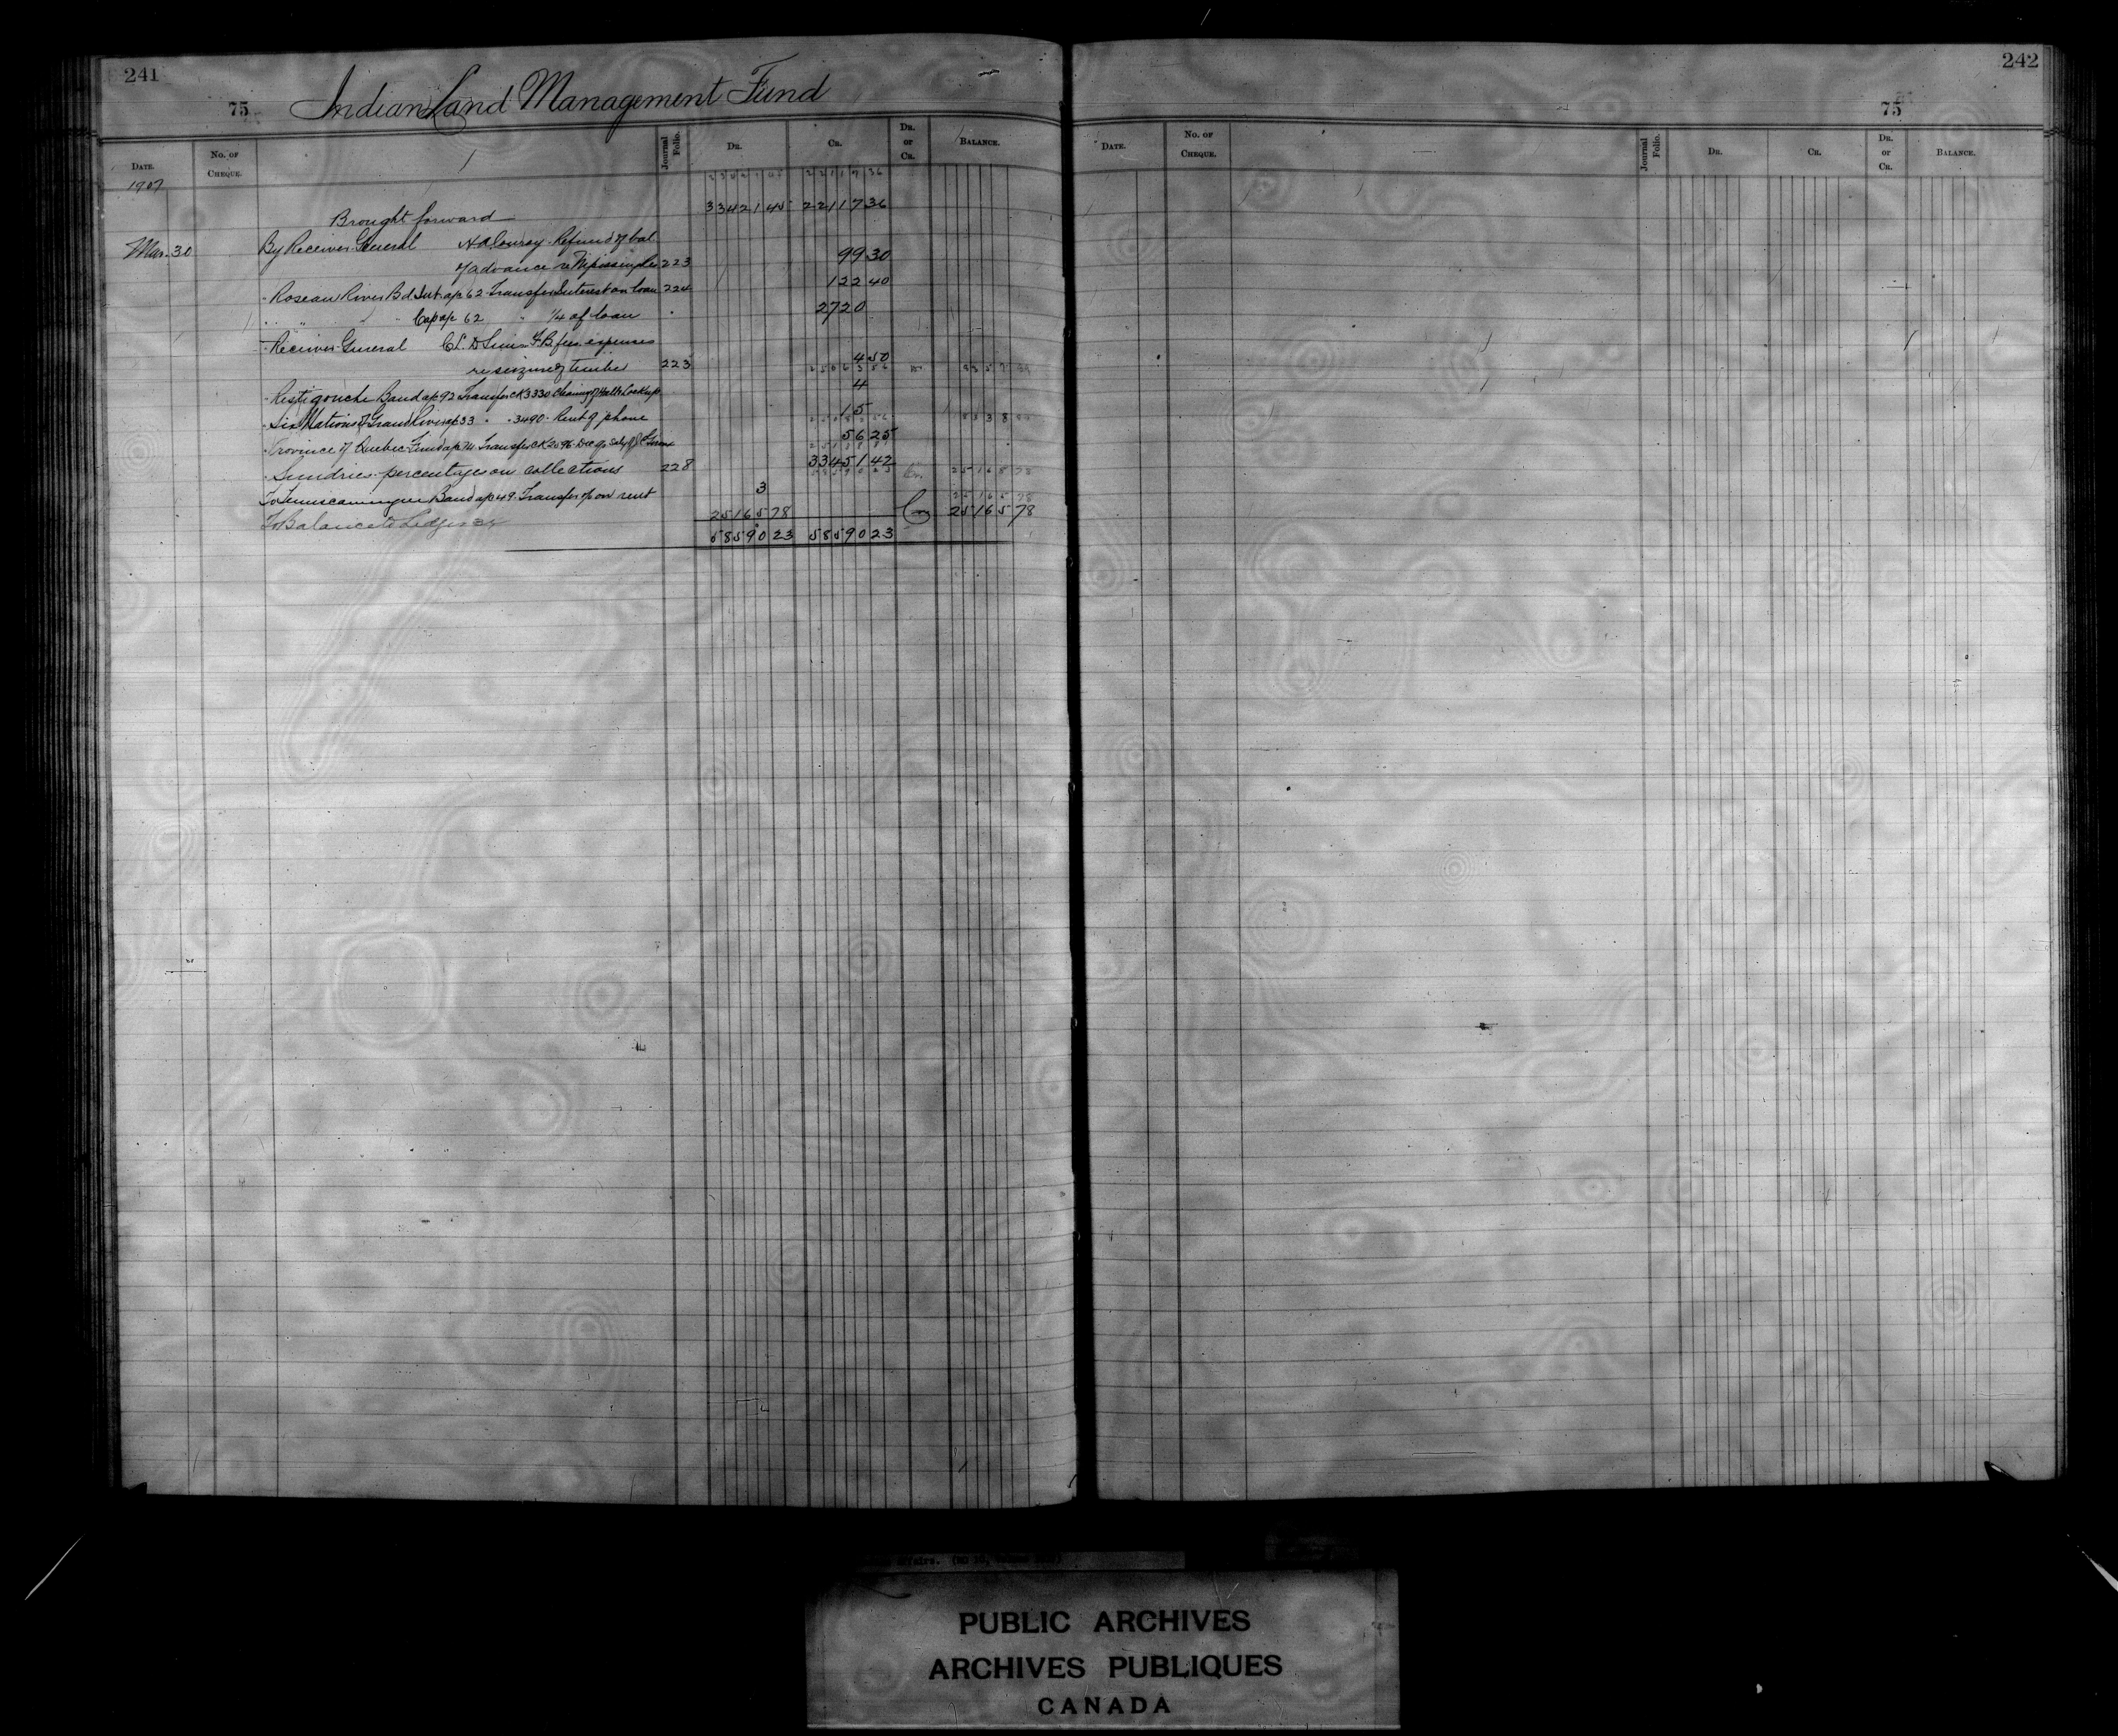 241
75 Indian Land Management Fund
Date. No. of Cheque. Journal Folio. Dr. Cr. Dr. or Cr. Balance.
1907
Brought forward 33421 45 22117 36
Mar. 30 By Receiver General Refund of bal.
of advance re 223 99 30
" Roseau River Bd Int a/c 62 Transfer Interest on loan 224 122 40
" " " Cap a/c 62 " 1/4 of loan " 2720
" Receiver General expenses
re seizure of timber 223 4 50
" Restigouche Band a/c 92 Transfer CK 3330 Lockup 4
" Six Nations of Grand River a/c 33 " " 3490 Rent of phone 15
" Province of Quebec Fund a/c Transfer CK 2696 Dec qr Saly 56 25
" Sundries percentages on collections 228 33451 42
To Temiscamingue Band a/c 49 Transfer on rent 3
To Balance to Ledger 25165 78 Cr 25165 78
58590 23 58590 23
242
75
Date. No. of Cheque. Journal Folio. Dr. Cr. Dr. or Cr. Balance.
PUBLIC ARCHIVES
ARCHIVES PUBLIQUES
CANADA